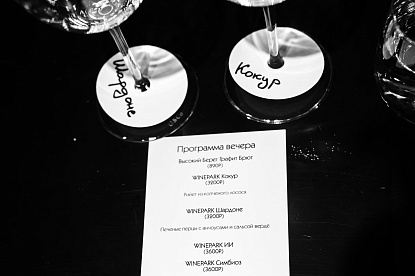 Шардоне
Кокур
Программа вечера
Высокий Берег Графит Брют
WINEPARK Кокур
(3200₽)
Рийет из копченого лосося
WINEPARK Шардоне
(3200₽)
Печеные перцы с анчоусами и сальсой верде
WINEPARK ИИ
(3600₽)
WINEPARK Симбиоз
(3600₽)